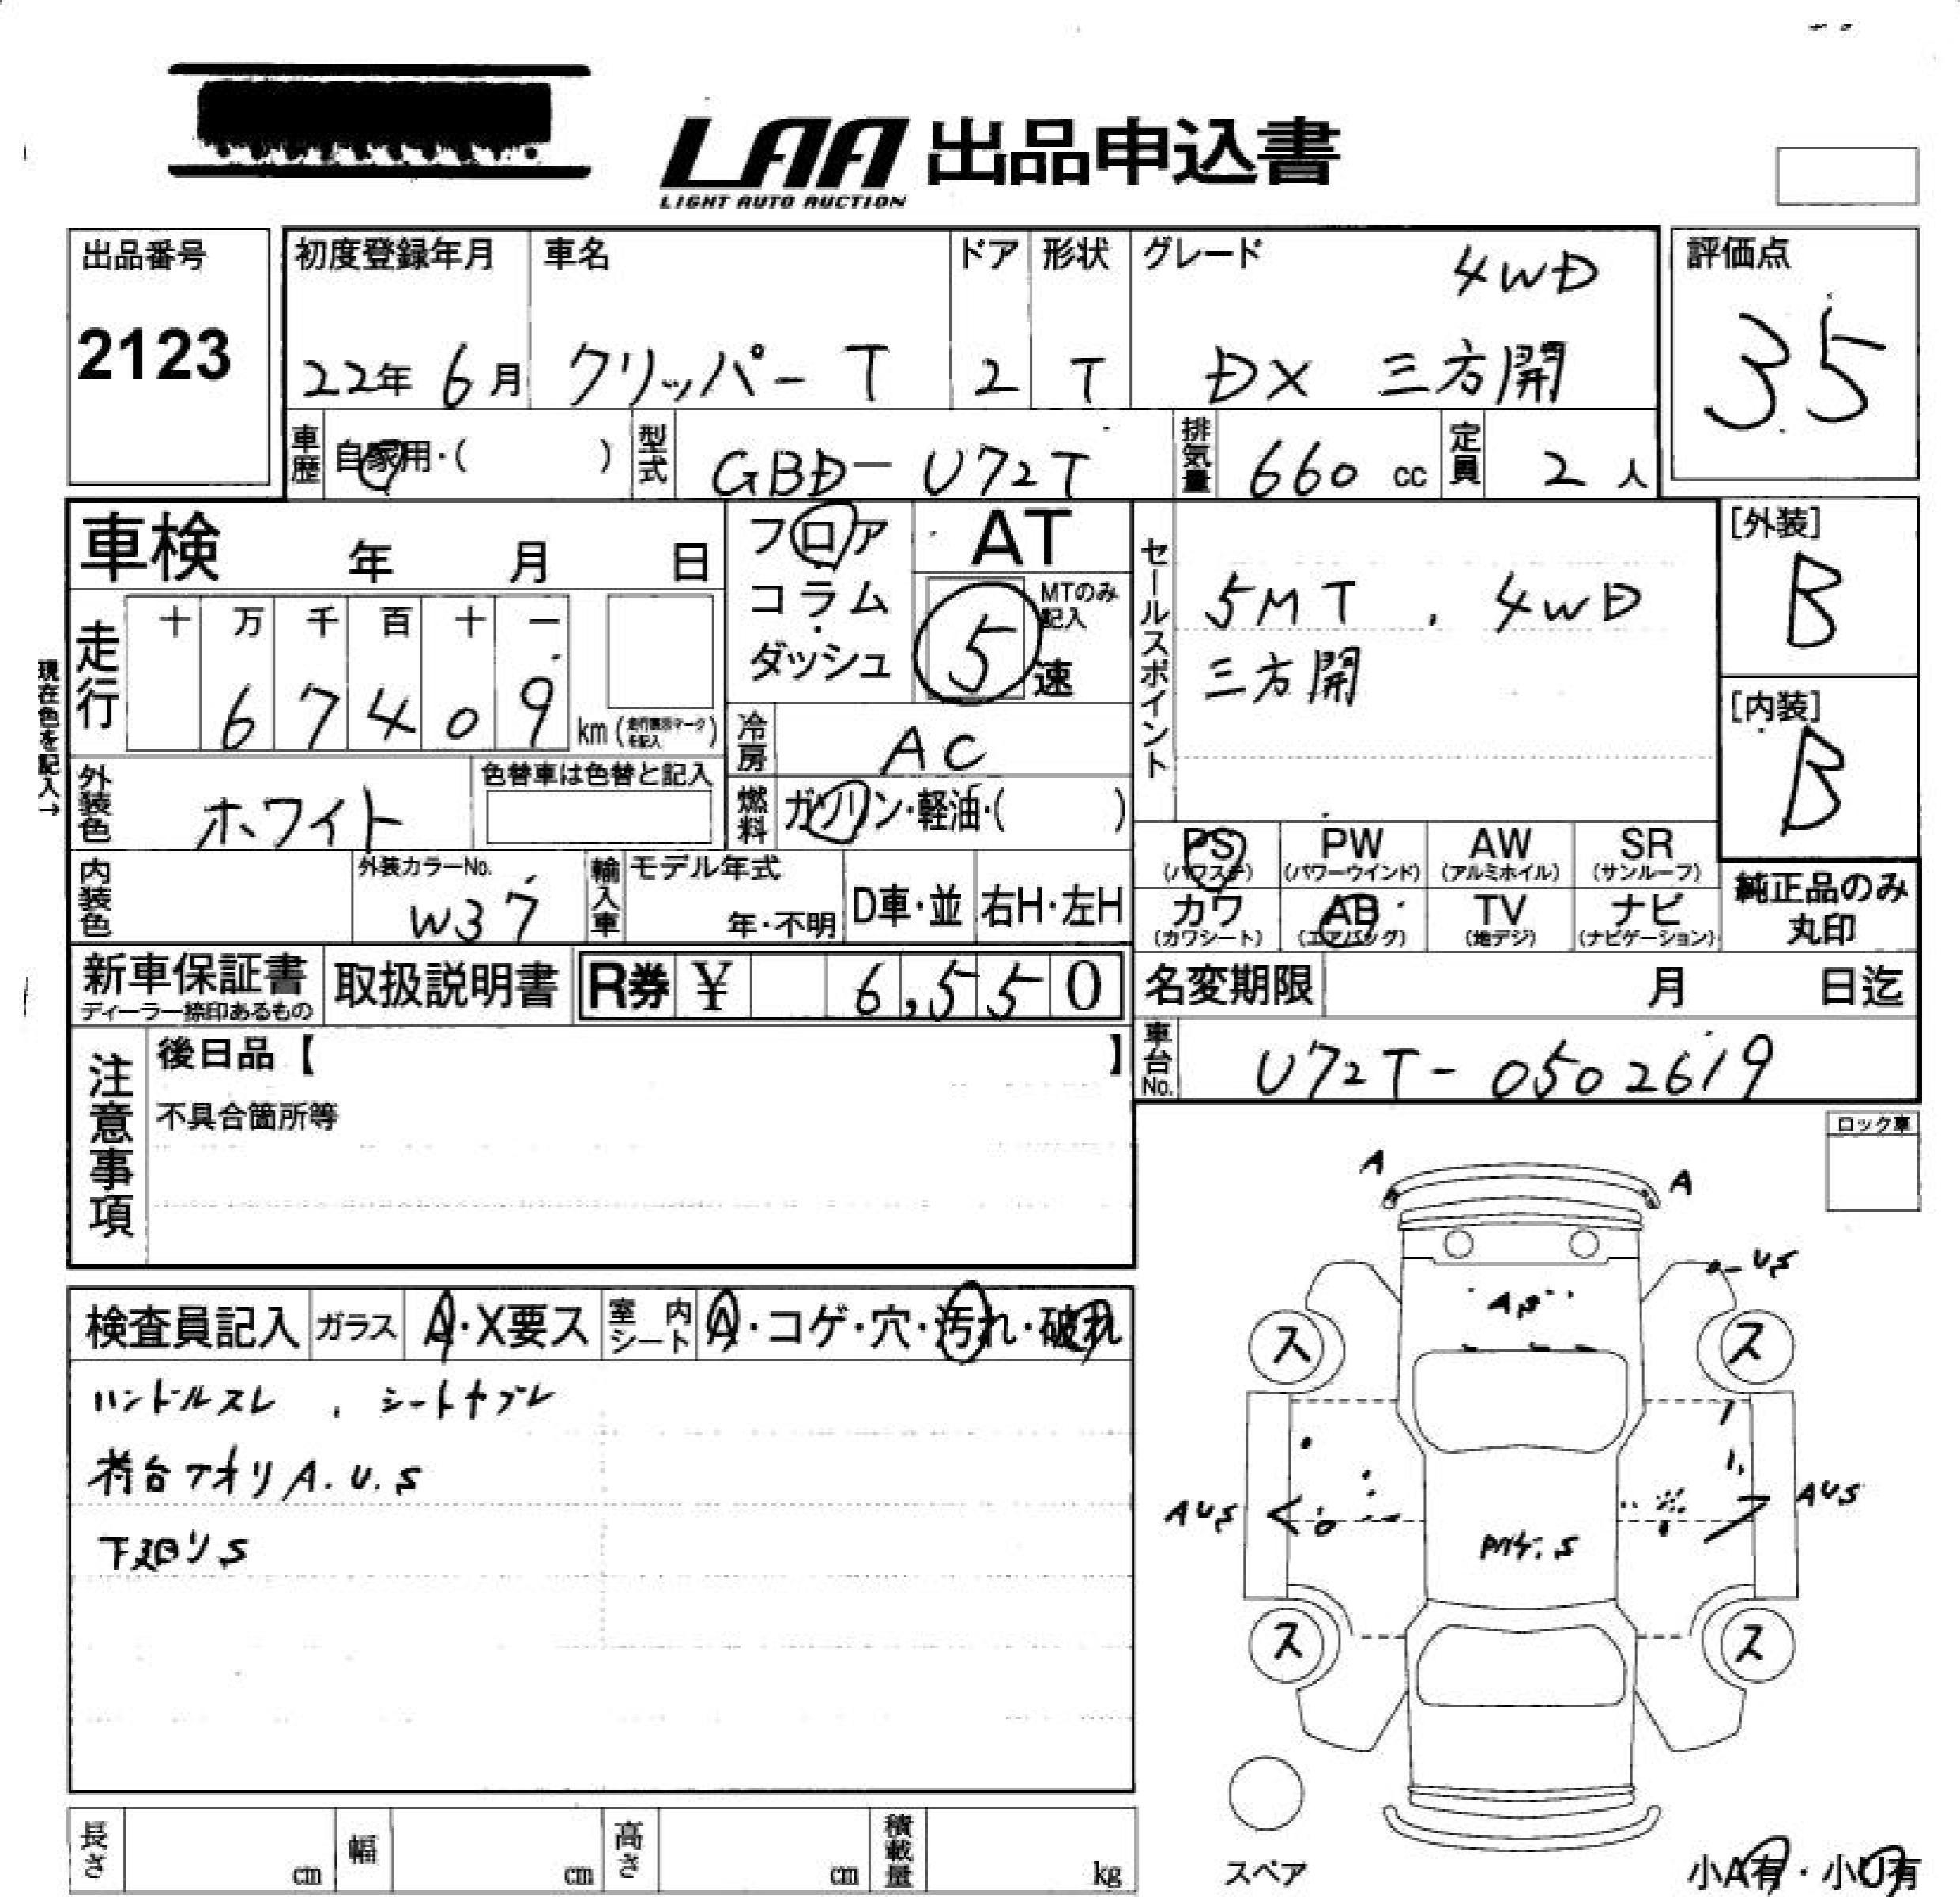 LAA 出品申込書
LIGHT AUTO AUCTION
出品番号
2123
初度登録年月 車名 ドア 形状 グレード 4WD
22年 6月 クリッパーT 2 T DX 三方開
評価点
3.5
車歴 自家用・( ) 型式 GBD-U72T 排気量 660 cc 定員 2 人
車検 年 月 日
フロア
コラム
・
ダッシュ
AT
MTのみ記入
5 速
現在色を記入→
走行 十 万 千 百 十 一
6 7 4 0 9 km (走行表示マークを記入)
冷房 AC
外装色 ホワイト
色替車は色替と記入
燃料 ガソリン・軽油・( )
セールスポイント
5MT . 4WD
三方開
[外装]
B
[内装]
B
PS PW AW SR
(パワステ) (パワーウインド) (アルミホイル) (サンルーフ)
カワ AB TV ナビ
(カワシート) (エアバッグ) (地デジ) (ナビゲーション)
純正品のみ
丸印
内装色
外装カラーNo.
W37
輸入車 モデル年式
年・不明 D車・並 右H・左H
新車保証書
ディーラー捺印あるもの
取扱説明書 R券 ¥ 6,550
名変期限 月 日迄
車台No. U72T-0502619
注意事項
後日品【 】
不具合箇所等
ロック車
検査員記入 ガラス A・X要ス 室内シート A・コゲ・穴・汚れ・破れ
ハンドルスレ , シートヤブレ
荷台アオリA.U.S
下廻りS
A
A
US
A,S
ス
ス
AUS
AUS
ス
ス
長さ cm 幅 cm 高さ cm 積載量 kg
スペア
小A有・小U有